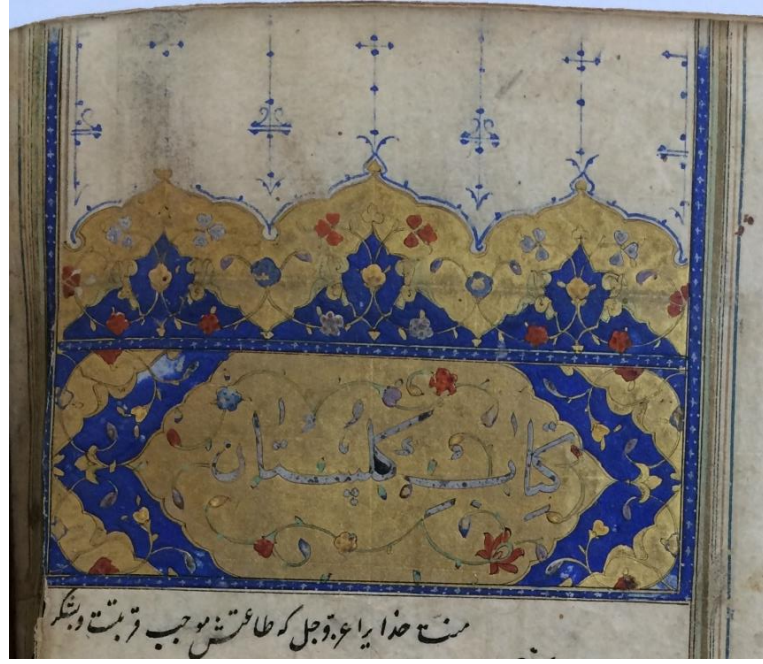 کتاب گلستان
منت خدایرا عزوجل که طاعتش موجب قربتست و بشکر